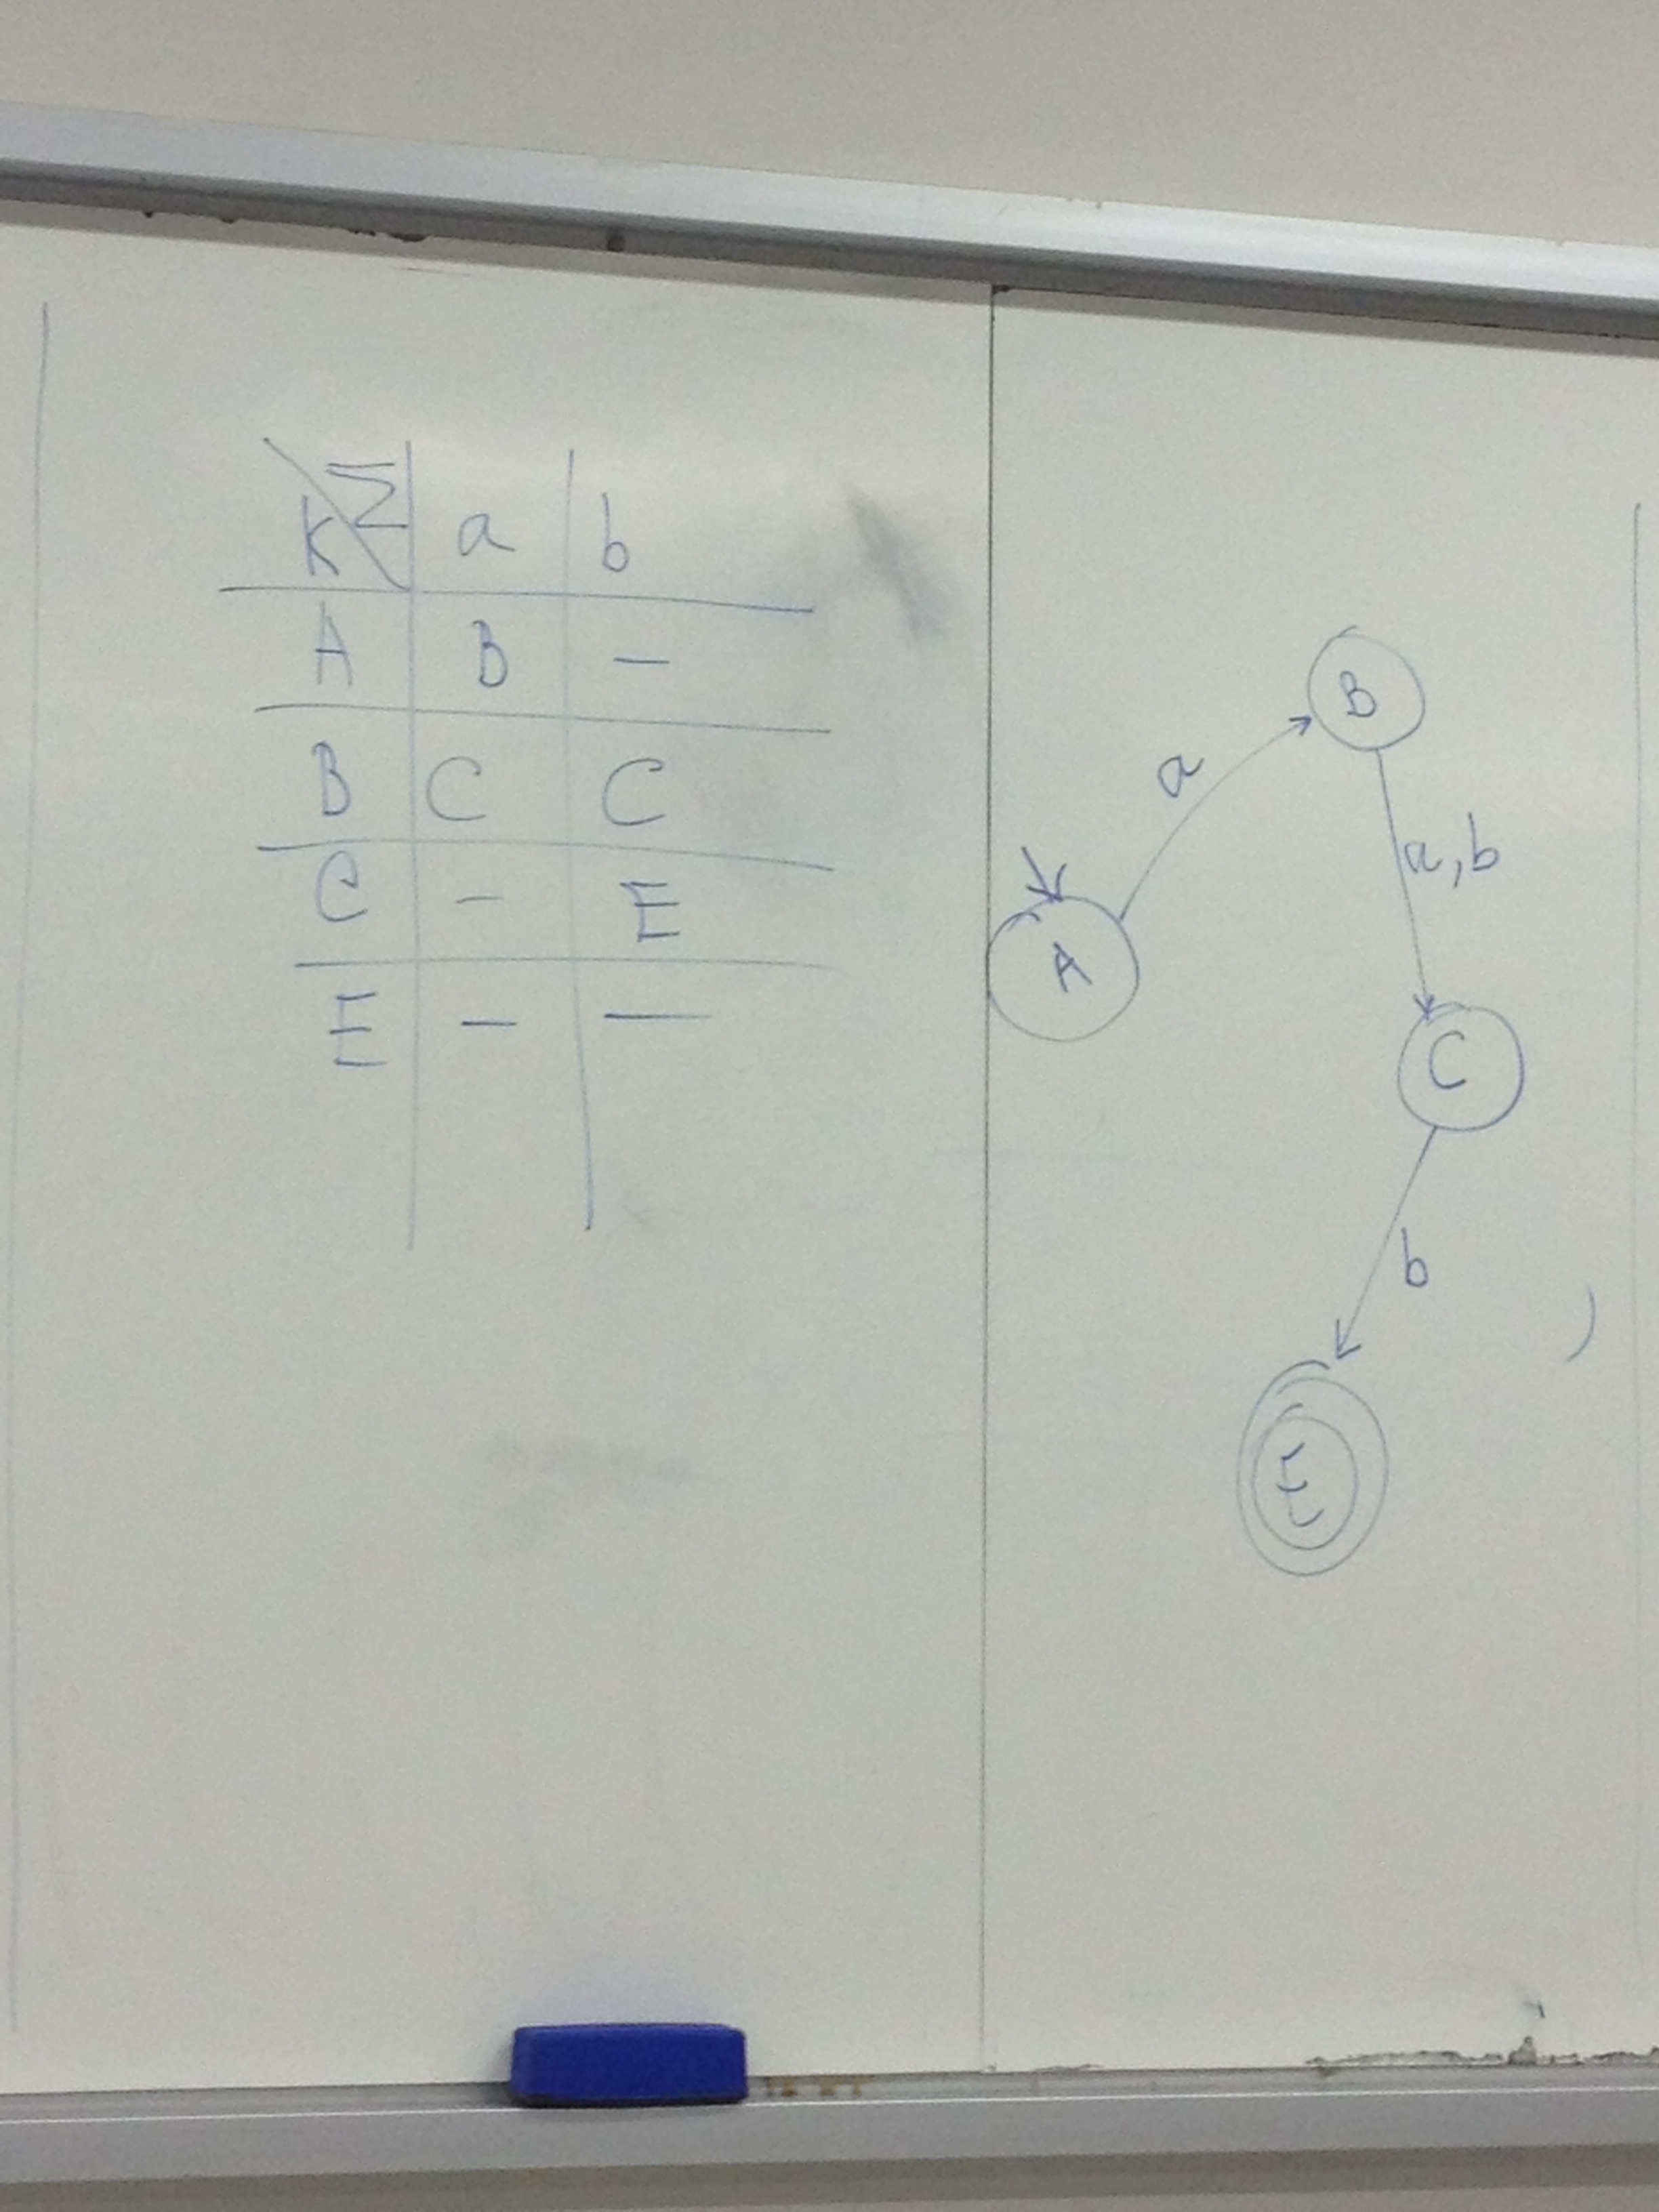 K Σ a b
A B —
B C C
C - E
E - —
B
a
a,b
A
C
b
E